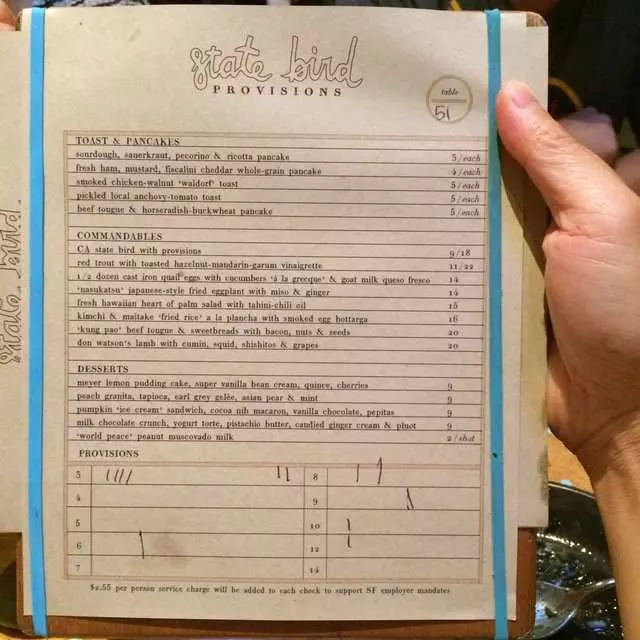 state bird
PROVISIONS
table
51
TOAST & PANCAKES
sourdough, sauerkraut, pecorino & ricotta pancake 3/each
fresh ham, mustard, fiscalini cheddar whole-grain pancake 4/each
smoked chicken-walnut 'waldorf' toast 5/each
pickled local anchovy-tomato toast 5/each
beef tongue & horseradish-buckwheat pancake 5/each
COMMANDABLES
CA state bird with provisions 9/18
red trout with toasted hazelnut-mandarin-garum vinaigrette 11/22
1/2 dozen cast iron quail eggs with cucumbers 'á la grecque' & goat milk queso fresco 14
'nasukatsu' japanese-style fried eggplant with miso & ginger 14
fresh hawaiian heart of palm salad with tahini-chili oil 15
kimchi & maitake 'fried rice' a la plancha with smoked egg bottarga 16
'kung pao' beef tongue & sweetbreads with bacon, nuts & seeds 20
don watson's lamb with cumin, squid, shishitos & grapes 20
DESSERTS
meyer lemon pudding cake, super vanilla bean cream, quince, cherries 9
peach granita, tapioca, earl grey gelée, asian pear & mint 9
pumpkin 'ice cream' sandwich, cocoa nib macaron, vanilla chocolate, pepitas 9
milk chocolate crunch, yogurt torte, pistachio butter, candied ginger cream & pluot 9
'world peace' peanut muscovado milk 2/shot
PROVISIONS
3 8
4 9
5 10
6 12
7 14
$2.55 per person service charge will be added to each check to support SF employer mandates
state bird